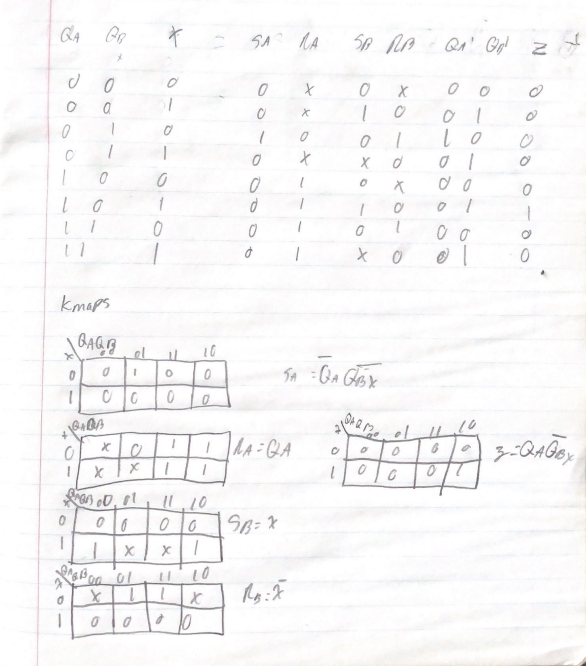 QA QB X = SA RA SB RB QA' QB' Z
0 0 0 0 x 0 x 0 0 0
0 0 1 0 x 1 0 0 1 0
0 1 0 1 0 0 1 1 0 0
0 1 1 0 x x 0 0 1 0
1 0 0 0 1 0 x 0 0 0
1 0 1 0 1 1 0 0 1 1
1 1 0 0 1 0 1 0 0 0
1 1 1 0 1 x 0 0 1 0
Kmaps
x QAQB 00 01 11 10
0 0 1 0 0
1 0 0 0 0
SA = Q̅A QB̅x̅
x QAQB
0 x 0 1 1
1 x x 1 1
RA = QA
x QAQB 00 01 11 10
0 0 0 0 0
1 0 0 0 1
z = QA Q̅B x
x QAQB 00 01 11 10
0 0 0 0 0
1 1 x x 1
SB = x
x QAQB 00 01 11 10
0 x 1 1 x
1 0 0 0 0
RB = x̅